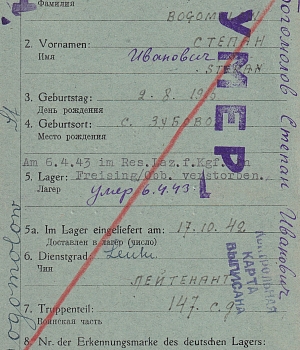 Фамилия
БОГОМОЛОВ
2. Vornamen: СТЕПАН
Имя Иванович
STEPAN
3. Geburtstag: 2. 8. 19
День рождения
4. Geburtsort: с. ЗУБОВО
Место рождения
Am 6.4.43 im Res.Laz.f.Kgf. in
Freising/Obb. verstorben.
5. Lager:
Лагер умер 6.4.43.
5a. Im Lager eingeliefert am: 17. 10. 42
Доставлен в лагёр (число)
6. Dienstgrad: Leutn
Чин ЛЕЙТЕНАНТ
7. Truppenteil: 147 с.д.
Воинская часть
8. Nr. der Erkennungsmarke des deutschen Lagers:
УМЕР
Богомолов Степан Иванович
КОНТРОЛЬНАЯ
КАРТА
ВЫПИСАНА